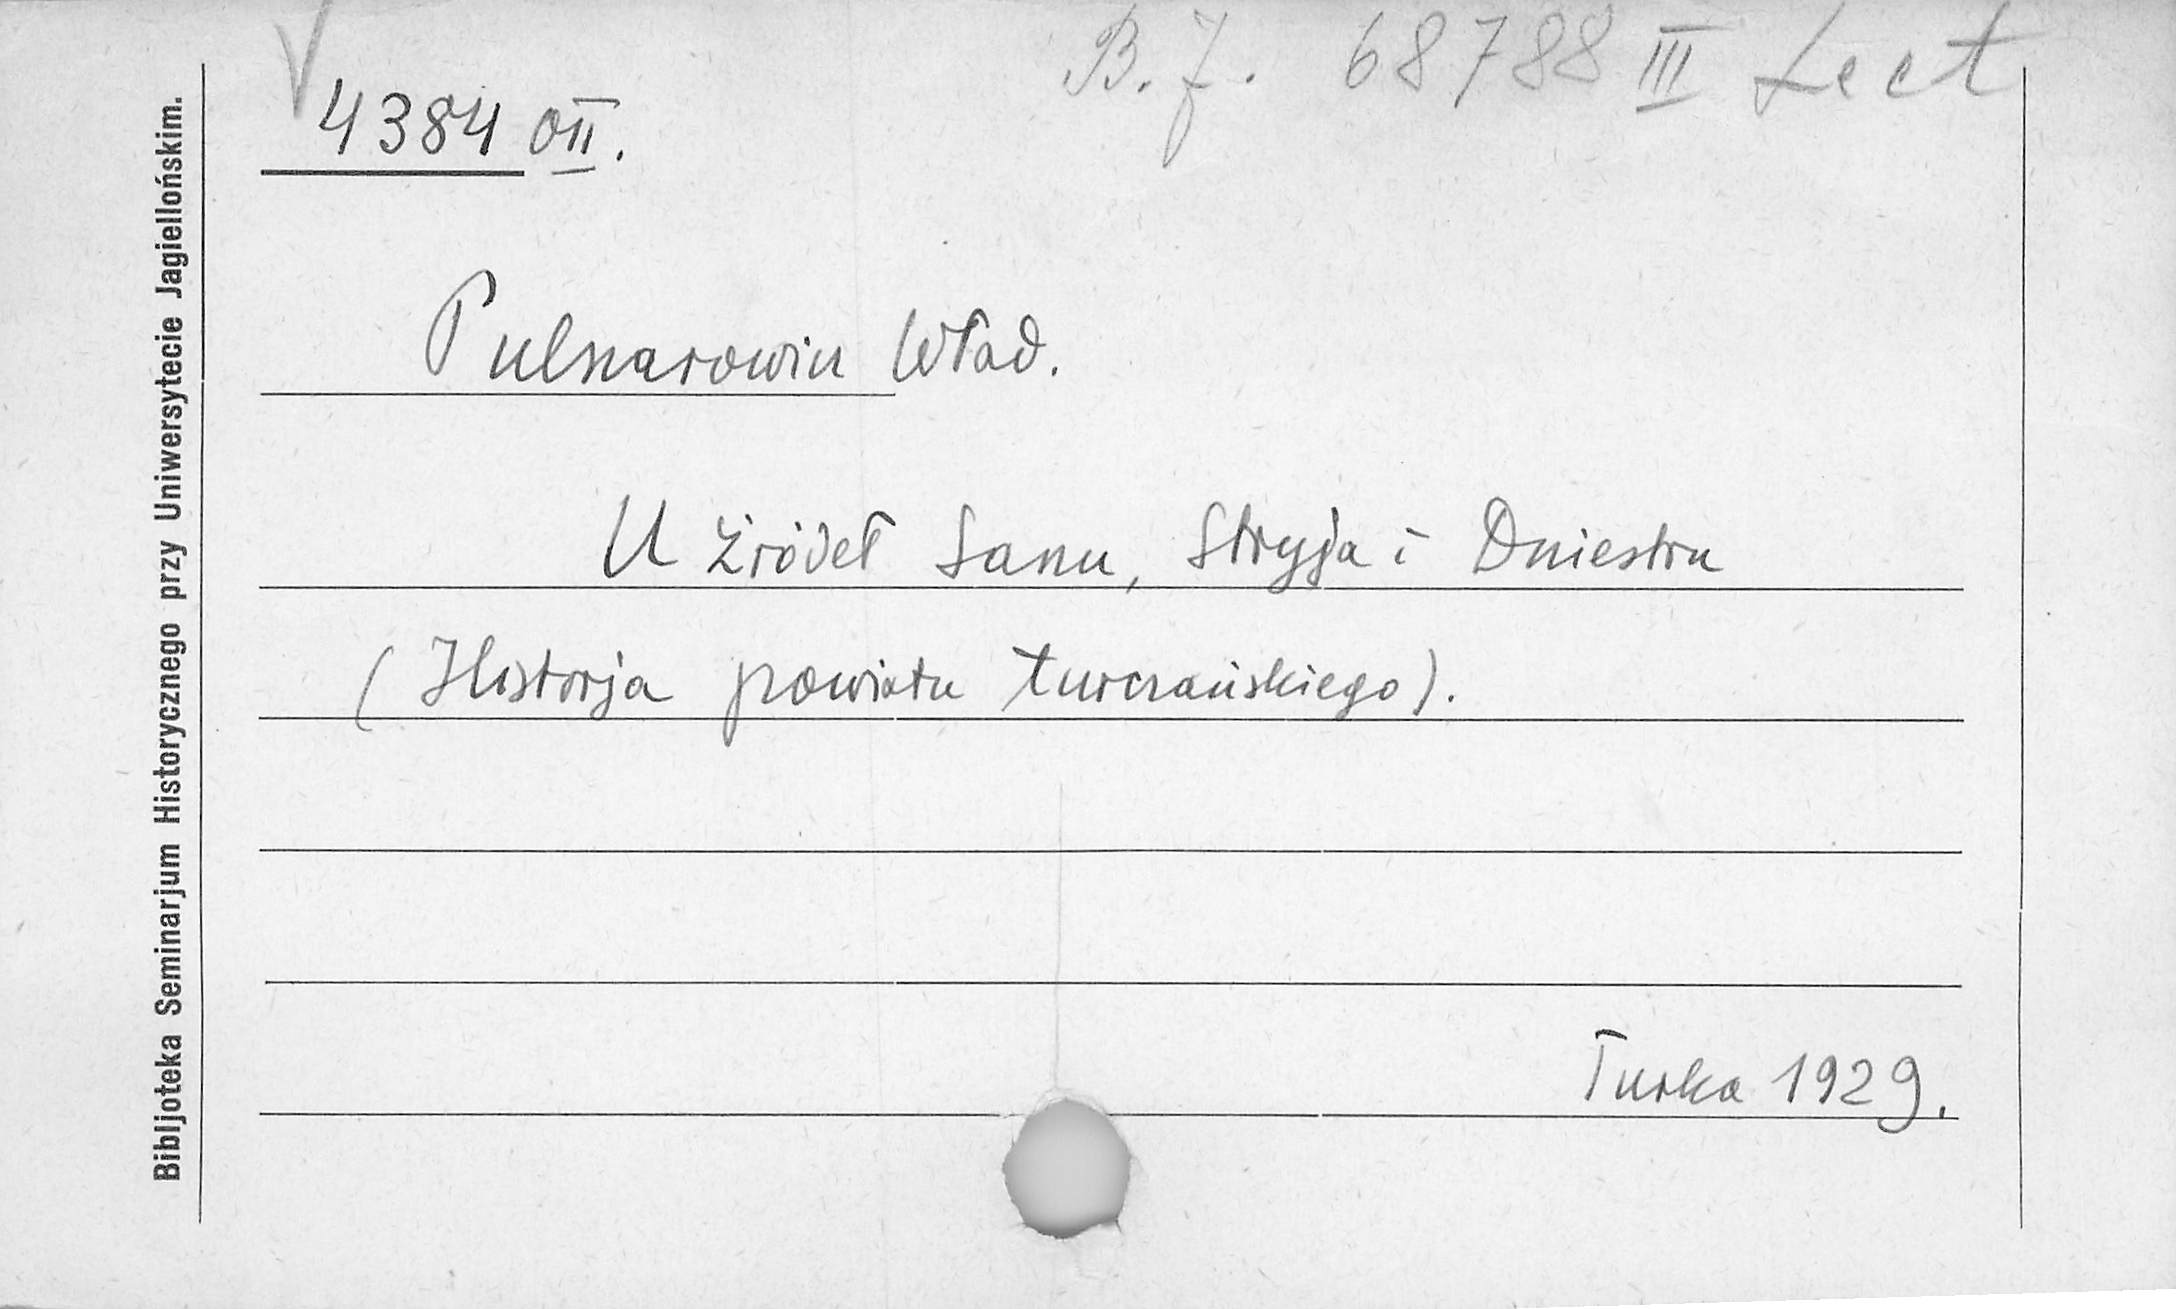 B. J. 68788 III Lect
4384 OII.
Pulnarowin Wład.
U źródeł Sanu, Stryja i Dniestru
(Historja powiatu turczańskiego).
Turka 1929.
Bibljoteka Seminarjum Historycznego przy Uniwersytecie Jagiellońskim.